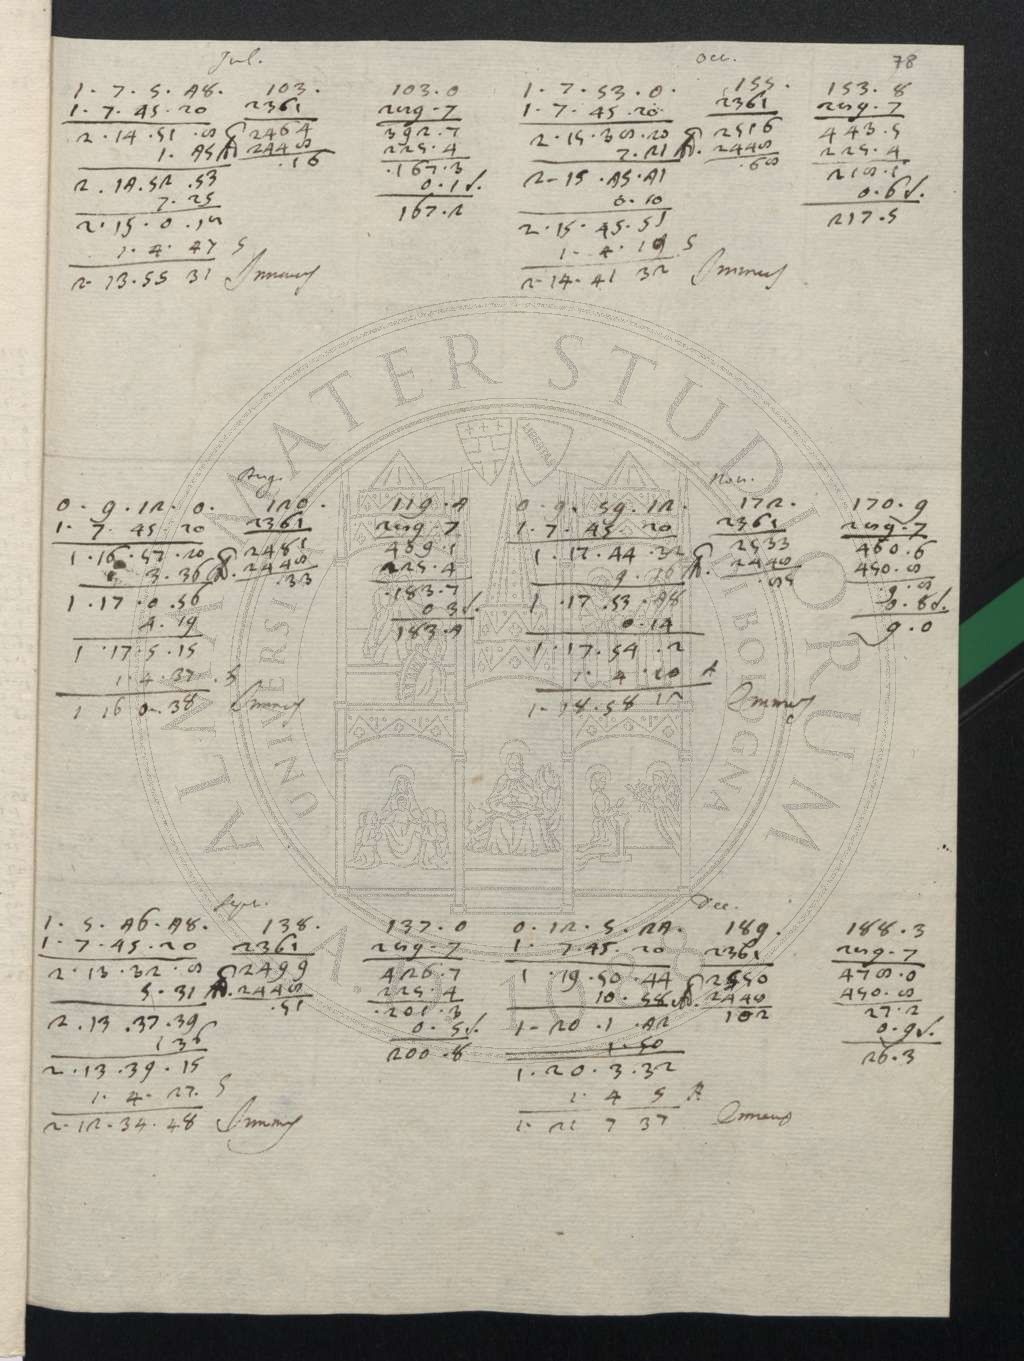 78
Jul.
1. 7. 5. 48. 103. 103.0
1. 7. 45. 20 2361 289.7
2. 14. 51. 8 2464 392.7
1. 45 A. 2448 225.4
2. 14. 52. 53 .16 .167.3
7. 25 0.1
2. 15. 0. 18 167.2
1. 4. 47 S
2. 13. 55 31
Aug.
0. 9. 12. 0. 120. 119.4
1. 7. 45. 20 2361 289.7
1. 16. 57. 20 2481 409.1
3. 36 A. 2448 225.4
1. 17. 0. 56 .33 .183.7
4. 19 0.3
1. 17. 5. 15 183.4
1. 4. 37. S
1 16 0. 38
Sept.
1. 5. 46. 48. 138. 137.0
1. 7. 45. 20 2361 289.7
2. 13. 32. 8 2499 426.7
5. 31 A. 2448 225.4
2. 13. 37. 39 .51 .201.3
1 36 0.5
2. 13. 39. 15 200.8
1. 4. 27. S
2. 12. 34. 48
Oct.
1. 7. 53. 0. 155. 153.8
1. 7. 45. 20 2361 289.7
2. 15. 38. 20 2516 443.5
7. 21 A. 2448 225.4
2. 15. 45. 41 .68 218.1
0. 10 0.6
2. 15. 45. 51 217.5
1. 4. 19 S
2. 14. 41 32
Nov.
0. 9. 59. 12. 172. 170.9
1. 7. 45. 20 2361 289.7
1. 17. 44. 32 2533 460.6
9. 16 A. 2448 450.8
1. 17. 53. 48 .85 9.8
0. 14 0.8
1. 17. 54. 2 9.0
1. 4. 10 A
1. 18. 58 12
Dec.
0. 12. 5. 24. 189. 188.3
1. 7. 45. 20 2361 289.7
1. 19. 50. 44 2550 478.0
10. 58 A. 2448 450.8
1. 20. 1. 42 102 27.2
1. 50 0.9
1. 20. 3. 32 26.3
1. 4 5 A
1. 21 7 37
ALMA MATER STUDIORUM
A.D. 1088